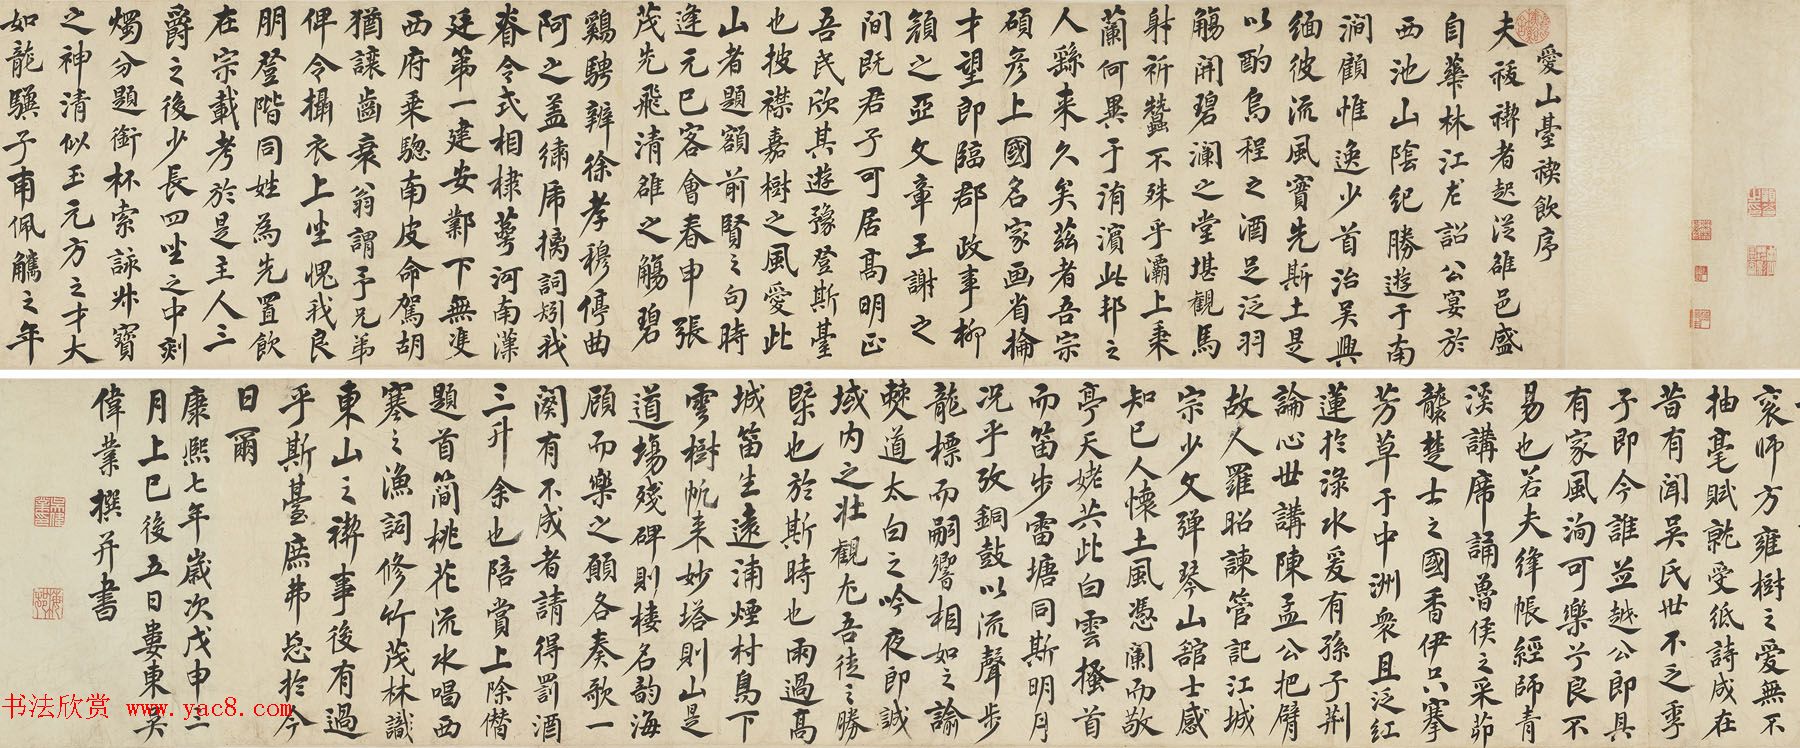 愛山臺禊飲序
夫祓禊者起從雒邑盛
自華林江左詔公宴於
西池山陰紀勝遊于南
澗顧惟逸少首治吳興
緬彼流風實先斯土是
以酌烏程之酒足泛羽
觴開碧瀾之堂堪觀馬
射祈蠶不殊乎灞上秉
蘭何異于洧濱此邦之
人繇来久矣茲者吾宗
碩彥上國名家画省掄
才望郎臨郡政事柳
之亞文章王謝之
間既君子可居高明正
吾民欣其遊豫登斯臺
也披襟嘉樹之風愛此
山者題額前賢之句時
逢元巳客會春申張
茂先飛清雒之觴碧
鷄騁辨徐孝穆停曲
阿之盖繡席摛詞矧我
眷令式相棣萼河南漢
廷第一建安鄴下無雙
西府乘驄南皮命駕胡
猶讓齒衰翁謂予兄弟
俾令攝衣上坐愧我良
朋登階同姓為先置飲
在宗載考於是主人三
爵之後少長四坐之中刻
燭分題銜杯索詠叔寶
之神清似玉元方之才大
如龍驥子甫佩觿之年
袞師方雍樹之愛無不
抽毫賦就受紙詩成在
昔有聞吳氏世不乏季
子即今誰並越公即具
有家風洵可樂兮良不
易也若夫絳帳經師青
溪講席誦魯侯之采茆
龔楚士之國香伊以搴
芳草于中洲衆且泛紅
蓮於淥水爰有孫子荊
論心世講陳孟公把臂
故人羅昭諫管記江城
宗少文彈琴山館士感
知己人懷土風憑闌而敵
亭天姥共此白雲搔首
而笛步雷塘同斯明月
況乎攷銅鼓以流聲步
龍標而嗣響相如之諭
僰道太白之吟夜郎誠
域内之壯觀尢吾徒之勝
槩也於斯時也雨過高
城笛生遠浦煙村鳥下
雲樹帆来妙塔則山是
道場殘碑則樓名韵海
顧而樂之願各奏歌一
闋有不成者請得罰酒
三升余也陪賞上除僭
題首簡桃花流水唱西
塞之漁詞修竹茂林識
東山之禊事後有過
乎斯臺庶弗忘於今
日爾
康熙七年歲次戊申三
月上巳後五日婁東吳
偉業撰并書
书法欣赏 www.yac8.com